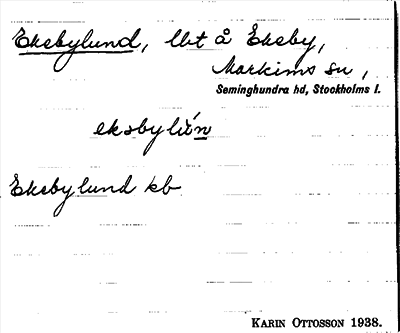 Ekebylund, lht å Ekeby,
Markims sn,
Seminghundra hd, Stockholms l.
eksbylún
Ekebylund kb
KARIN OTTOSSON 1938.